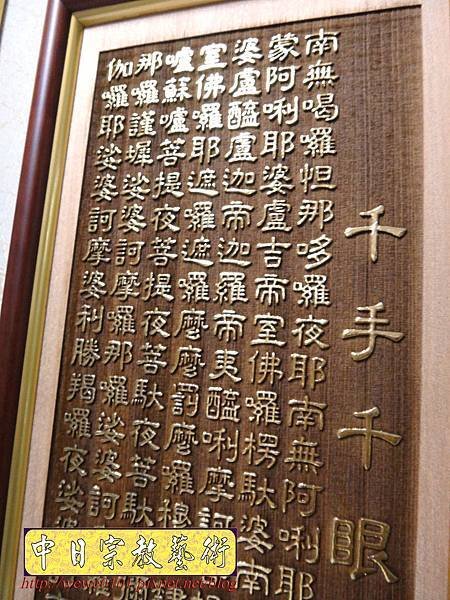 千手千眼
南無喝囉怛那哆囉夜耶南無阿唎耶
蒙阿唎耶婆盧吉帝室佛囉楞馱婆南
婆盧醯盧迦帝迦羅帝夷醯唎摩訶
室佛囉耶遮囉遮囉麼麼罰麼囉穆
嚧蘇嚧菩提夜菩提夜菩馱夜菩馱
那囉謹墀娑婆訶摩囉那囉娑婆訶
伽囉耶娑婆訶摩婆利勝羯囉夜娑婆
中日宗教藝術